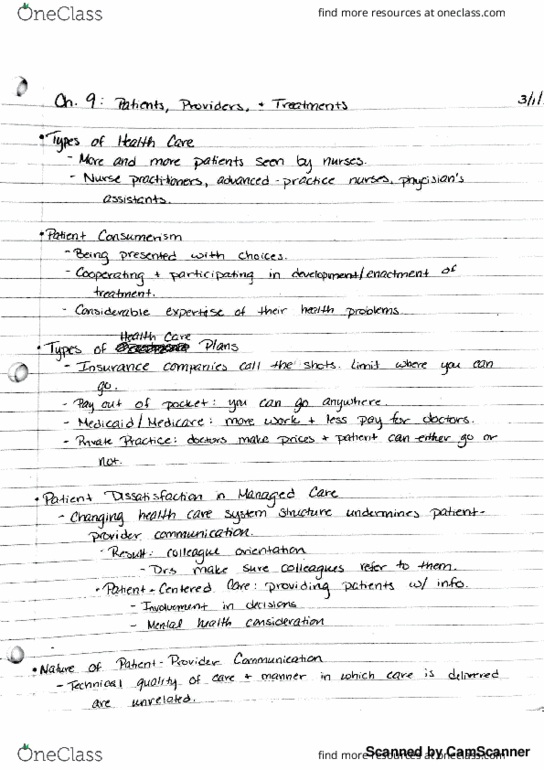 OneClass find more resources at oneclass.com
Ch. 9: Patients, Providers, + Treatments 3/1/
• Types of Health Care
- More and more patients seen by nurses.
- Nurse practitioners, advanced-practice nurses, physician's
assistants.
• Patient Consumerism
- Being presented with choices.
- Cooperating + participating in development/enactment of
treatment.
- Considerable expertise of their health problems
Health Care
• Types of Plans
- Insurance companies call the shots. Limit where you can
go.
- Pay out of pocket: you can go anywhere.
- Medicaid/Medicare: more work + less pay for doctors.
- Private Practice: doctors make prices + patient can either go or
not.
• Patient Dissatisfaction in Managed Care
- Changing health care system structure undermines patient-
provider communication.
- Result: colleague orientation
- Drs make sure colleagues refer to them.
• Patient-Centered Care: providing patients w/ info.
- Involvement in decisions
- Mental health consideration
• Nature of Patient-Provider Communication
- Technical quality of care + manner in which care is delivered
are unrelated.
OneClass find more resources at oneclass.com
Scanned by CamScanner